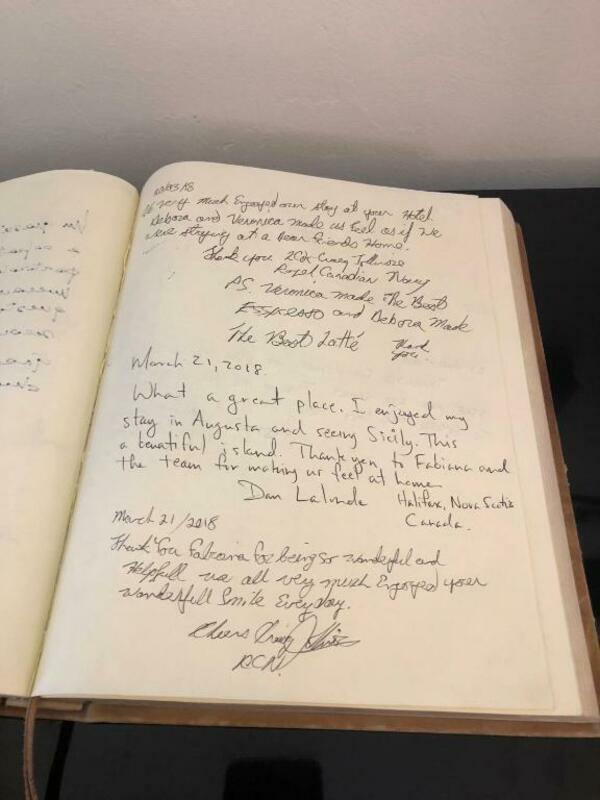 We very much Enjoyed our stay at your Hotel
Debora and Veronica made us Feel as if we
were staying at a Dear Friends Home.
Thank you Craig
Royal Canadian Navy
PS. Veronica made The Best
Espresso and Debora Made
The Best Latté Thank you.
March 21, 2018.
What a great place. I enjoyed my
stay in Augusta and seeing Sicily. This
a beautiful island. Thank you to Fabiana and
the team for making us feel at home
Dan Lalonde Halifax, Nova Scotia
Canada.
March 21/2018
Thank You Fabiana for being so wonderful and
Helpfull we all very much Enjoyed your
wonderfull Smile Everyday.
Cheers Craig
RCN.